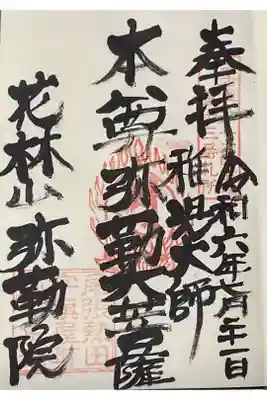 奉拝
令和六年
稚児大師
本尊弥勒大菩薩
花林山弥勒院
尾張熱田